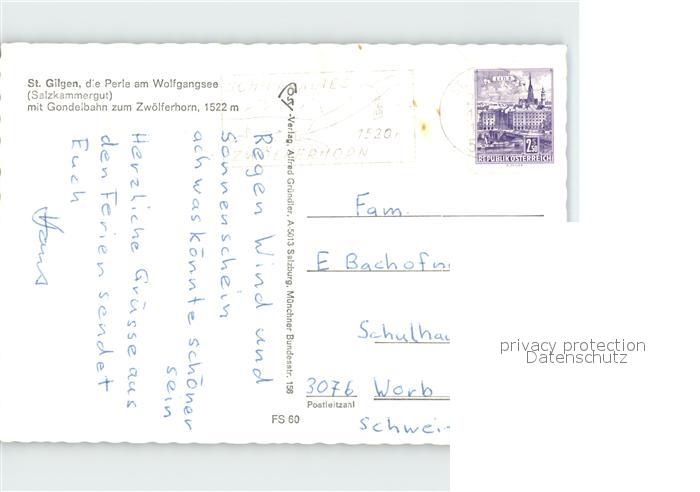 St. Gilgen, die Perle am Wolfgangsee
(Salzkammergut)
mit Gondelbahn zum Zwölferhorn, 1522 m
Regen Wind und
Sonnenschein
ach was könnte schöner
sein
Herzliche Grüsse aus
den Ferien sendet
Euch
Hans
Cosy-Verlag, Alfred Gründler, A-5013 Salzburg, Münchner Bundesstr. 158
1520
ZWÖLFERHORN
2.50
REPUBLIK ÖSTERREICH
Fam.
E Bachofn
Schulhau
3076 Worb
Postleitzahl
Schwei
FS 60
privacy protection
Datenschutz